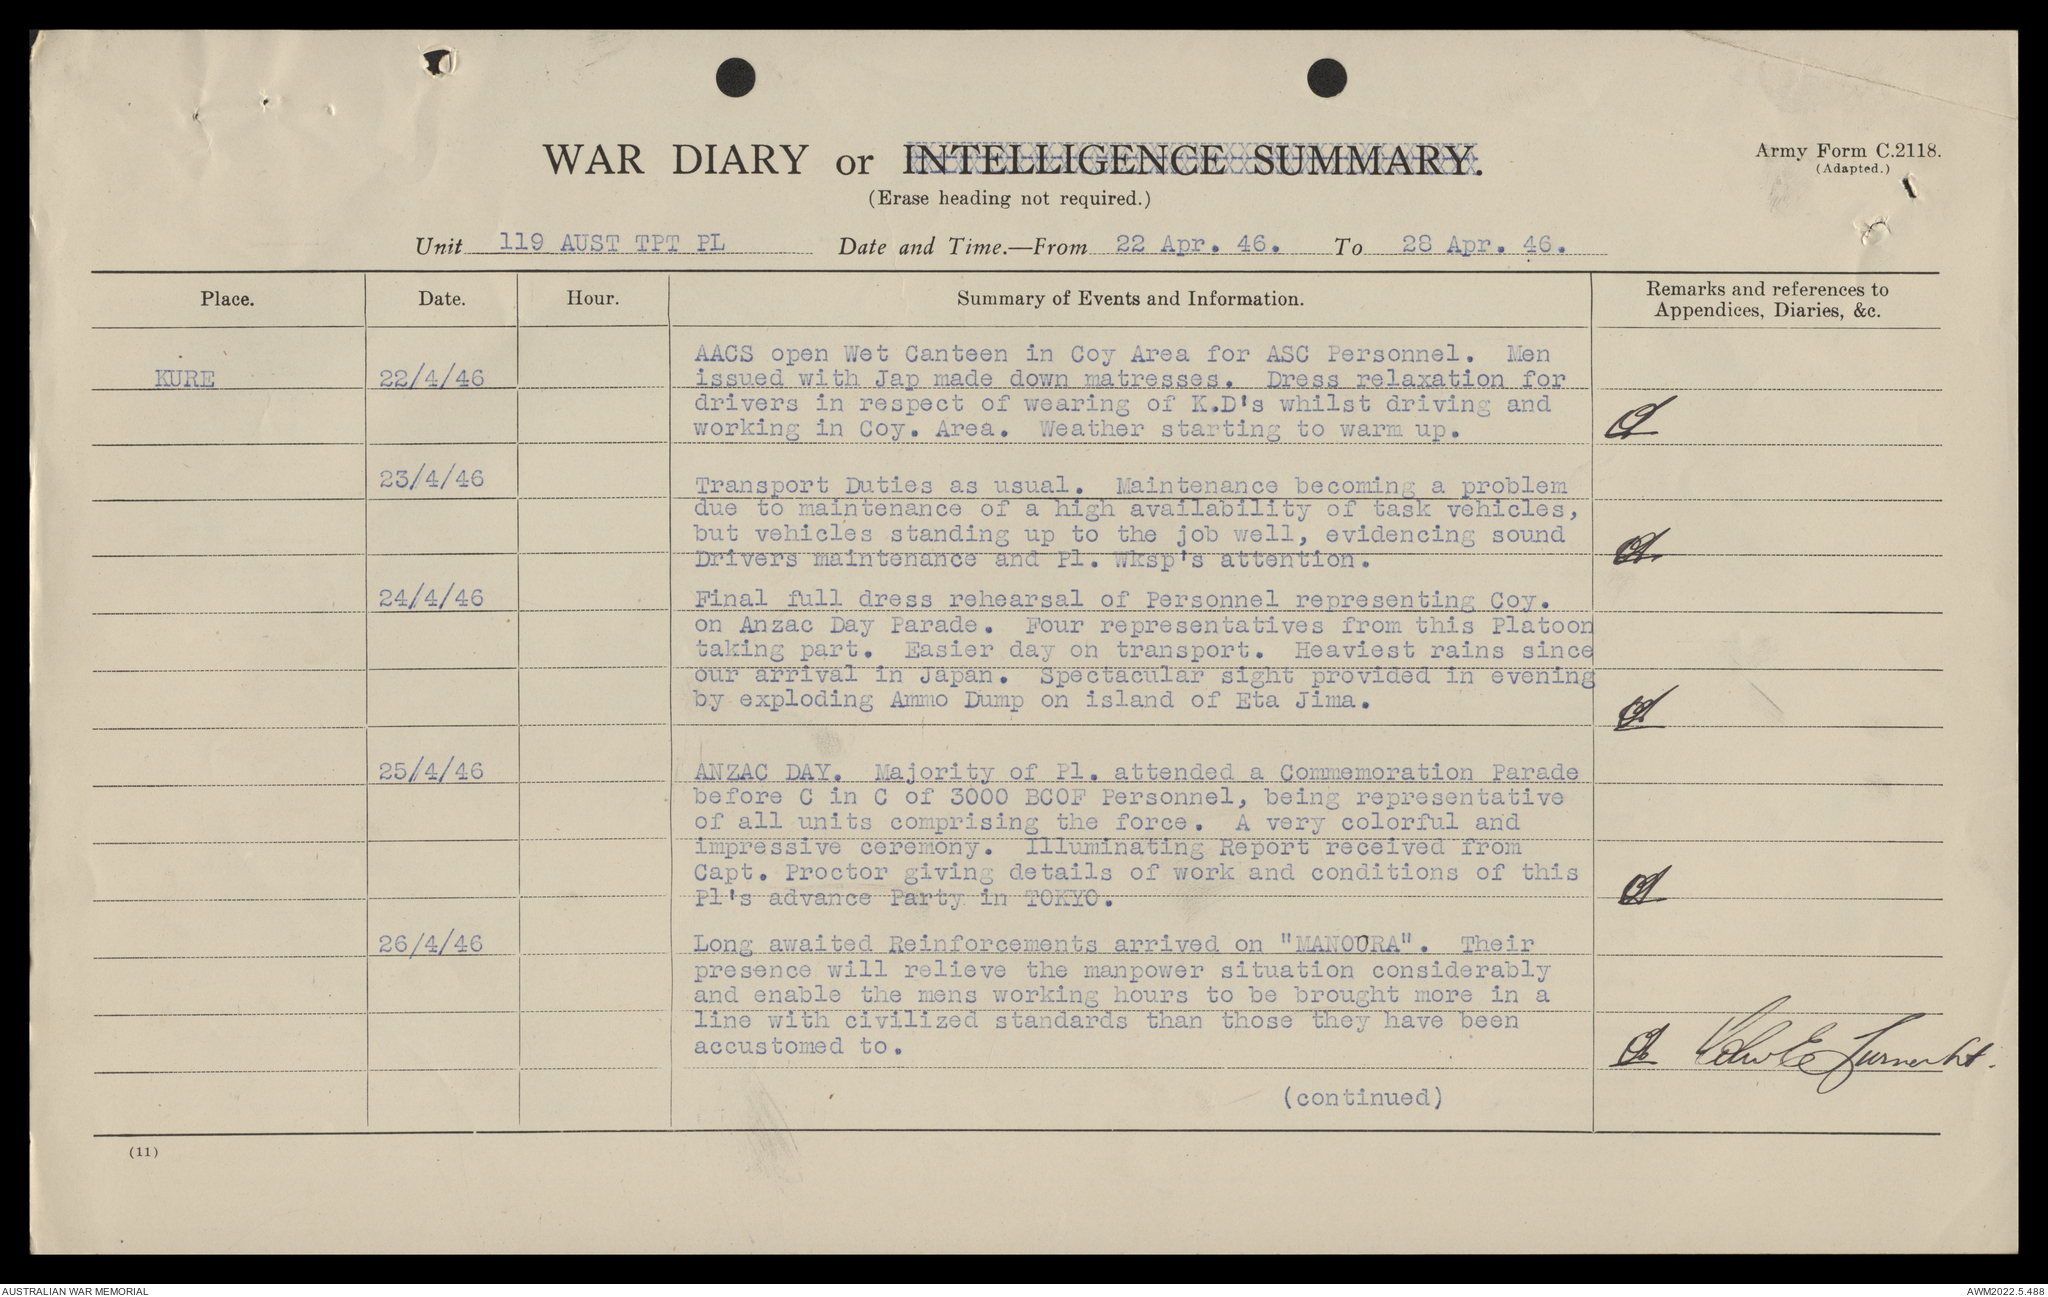 WAR DIARY or INTELLIGENCE SUMMARY.
Army Form C.2118.
(Adapted.)
(Erase heading not required.)
Unit 119 AUST TPT PL Date and Time.—From 22 Apr. 46. To 28 Apr. 46.
Place. Date. Hour. Summary of Events and Information. Remarks and references to
Appendices, Diaries, &c.
AACS open Wet Canteen in Coy Area for ASC Personnel. Men
KURE 22/4/46 issued with Jap made down matresses. Dress relaxation for
drivers in respect of wearing of K.D's whilst driving and
working in Coy. Area. Weather starting to warm up.
23/4/46
Transport Duties as usual. Maintenance becoming a problem
due to maintenance of a high availability of task vehicles,
but vehicles standing up to the job well, evidencing sound
Drivers maintenance and Pl. Wksp's attention.
24/4/46 Final full dress rehearsal of Personnel representing Coy.
on Anzac Day Parade. Four representatives from this Platoon
taking part. Easier day on transport. Heaviest rains since
our arrival in Japan. Spectacular sight provided in evening
by exploding Ammo Dump on island of Eta Jima.
25/4/46 ANZAC DAY. Majority of Pl. attended a Commemoration Parade
before C in C of 3000 BCOF Personnel, being representative
of all units comprising the force. A very colorful and
impressive ceremony. Illuminating Report received from
Capt. Proctor giving details of work and conditions of this
Pl's advance Party in TOKYO.
26/4/46 Long awaited Reinforcements arrived on "MANOORA". Their
presence will relieve the manpower situation considerably
and enable the mens working hours to be brought more in a
line with civilized standards than those they have been
accustomed to.
(continued)
(11)
AUSTRALIAN WAR MEMORIAL
AWM2022.5.488